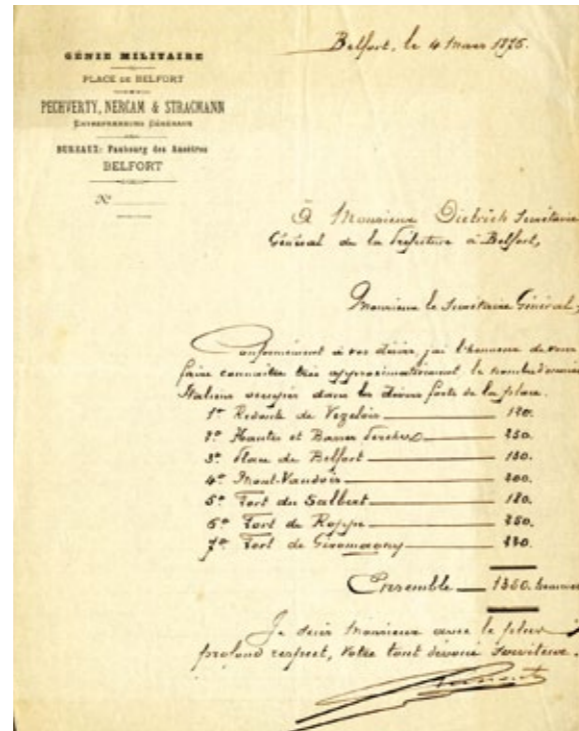 GÉNIE MILITAIRE
PLACE DE BELFORT
PECHVERTY, NERCAM & STRACMANN
ENTREPRENEURS GÉNÉRAUX
BUREAUX: Faubourg des Ancêtres
BELFORT
N°
Belfort, le 4 Mars
À Monsieur Dietrich Secrétaire
Général de la Préfecture à Belfort,
Monsieur le Secrétaire Général,
Conformément à vos désirs, j'ai l'honneur de vous
faire connaître très approximativement le nombre d'ouvriers
Italiens occupés dans les divers forts de la place.
1° Redoute de Vezelois
2° Hautes et Basses Perches 250.
3° Place de Belfort
4° Mont-Vaudois
5° Fort du Salbert
6° Fort de Roppe
7° Fort de Giromagny
Ensemble 1360. hommes
Je suis Monsieur avec le plus
profond respect, Votre tout dévoué serviteur.